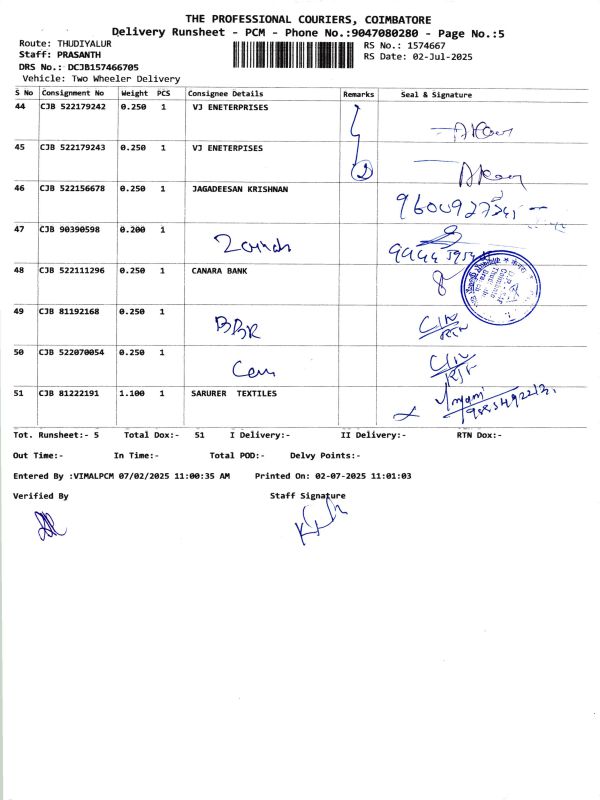 THE PROFESSIONAL COURIERS, COIMBATORE
Delivery Runsheet - PCM - Phone No.:9047080280 - Page No.:5
Route: THUDIYALUR
Staff: PRASANTH
DRS No.: DCJB157466705
Vehicle: Two Wheeler Delivery
RS No.: 1574667
RS Date: 02-Jul-2025
S No Consignment No Weight PCS Consignee Details Remarks Seal & Signature
44 CJB 522179242 0.250 1 VJ ENETERPRISES
45 CJB 522179243 0.250 1 VJ ENETERPISES 2
46 CJB 522156678 0.250 1 JAGADEESAN KRISHNAN
47 CJB 90390598 0.200 1
48 CJB 522111296 0.250 1 CANARA BANK
49 CJB 81192168 0.250 1 BBR
50 CJB 522070054 0.250 1
51 CJB 81222191 1.100 1 SARURER TEXTILES
Tot. Runsheet:- 5 Total Dox:- 51 I Delivery:- II Delivery:- RTN Dox:-
Out Time:- In Time:- Total POD:- Delvy Points:-
Entered By :VIMALPCM 07/02/2025 11:00:35 AM Printed On: 02-07-2025 11:01:03
Verified By Staff Signature